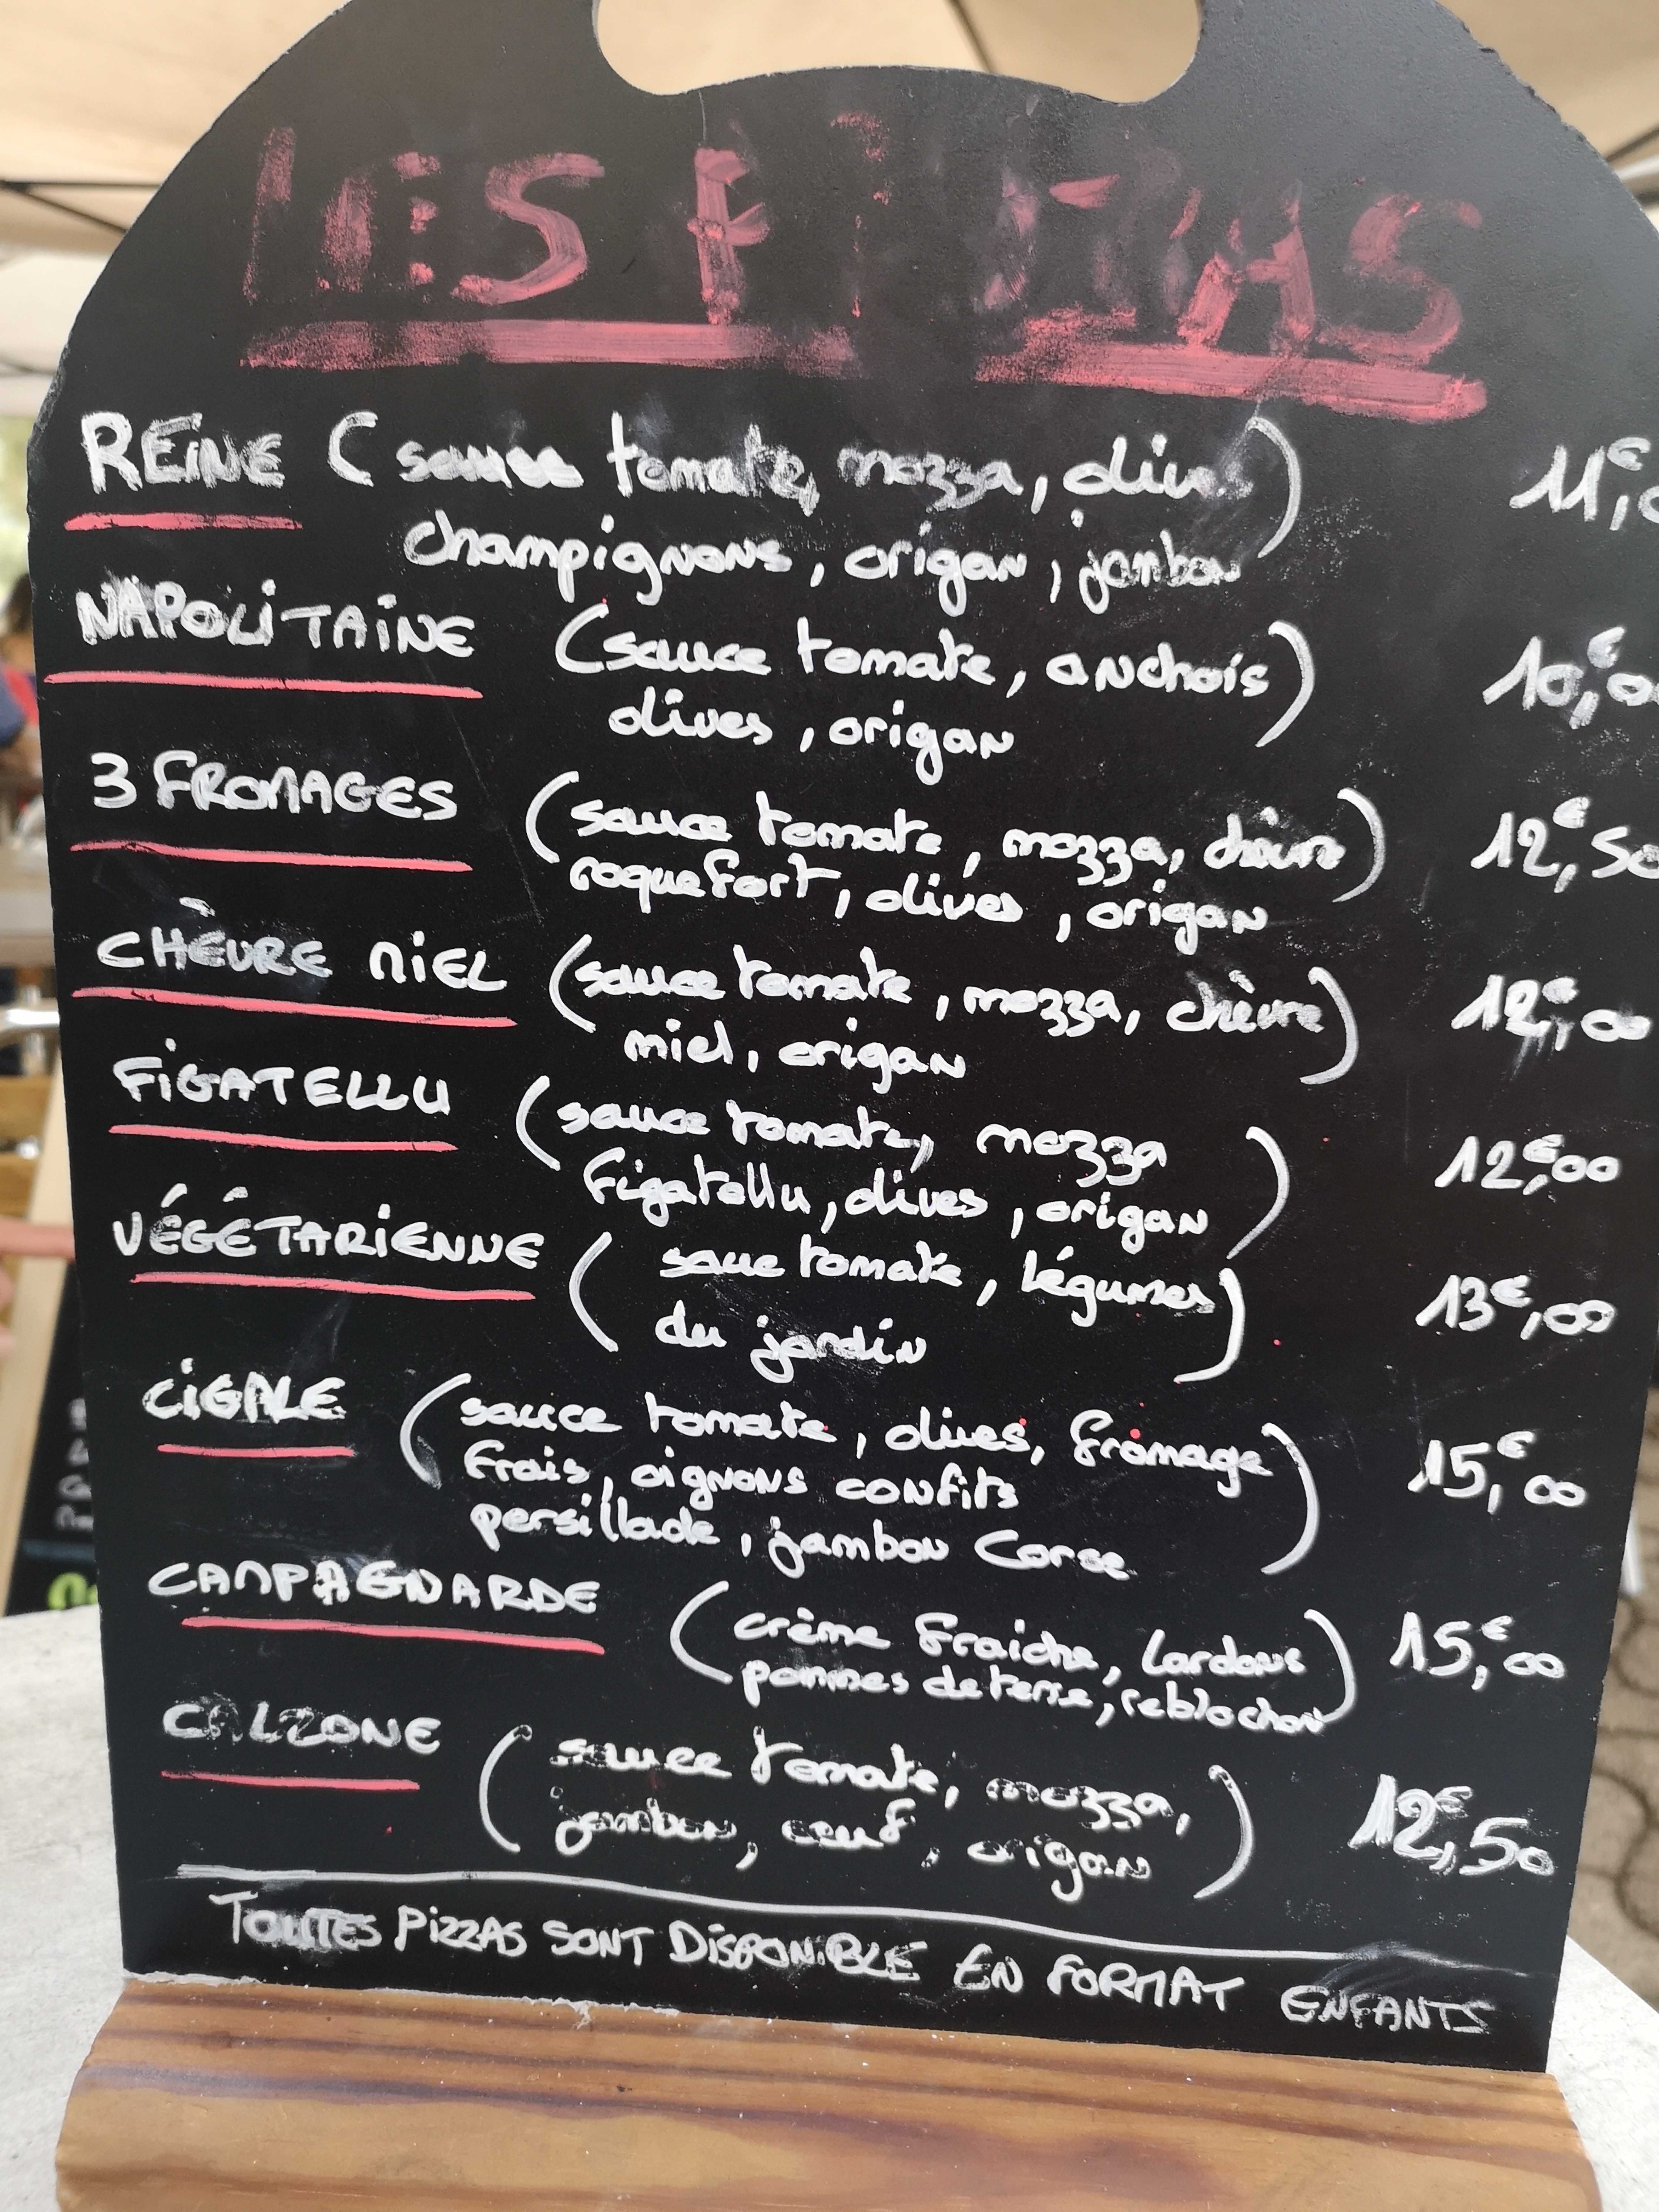 LES PIZZAS
REINE (sauce tomate, mozza, olives) 11€,
champignons, origan, jambon
NAPOLITAINE (sauce tomate, anchois) 10€,00
olives, origan
3 FROMAGES (sauce tomate, mozza, chèvre) 12€,50
roquefort, olives, origan
CHÈVRE MIEL (sauce tomate, mozza, chèvre) 12€,00
miel, origan
FIGATELLU (sauce tomate, mozza 12€,00
figatellu, olives, origan)
VÉGÉTARIENNE (saue tomate, légumes) 13€,00
du jardin
CIGALE (sauce tomate, olives, fromage 15,€00
frais, oignons confits
persillade, jambon Corse)
CAMPAGNARDE (crème fraiche, lardons 15,€00
pommes de terre, reblochon)
CALZONE (sauce tomate, mozza, 12€,50
jambon, oeuf, origan)
TOUTES PIZZAS SONT DISPONIBLE EN FORMAT ENFANTS